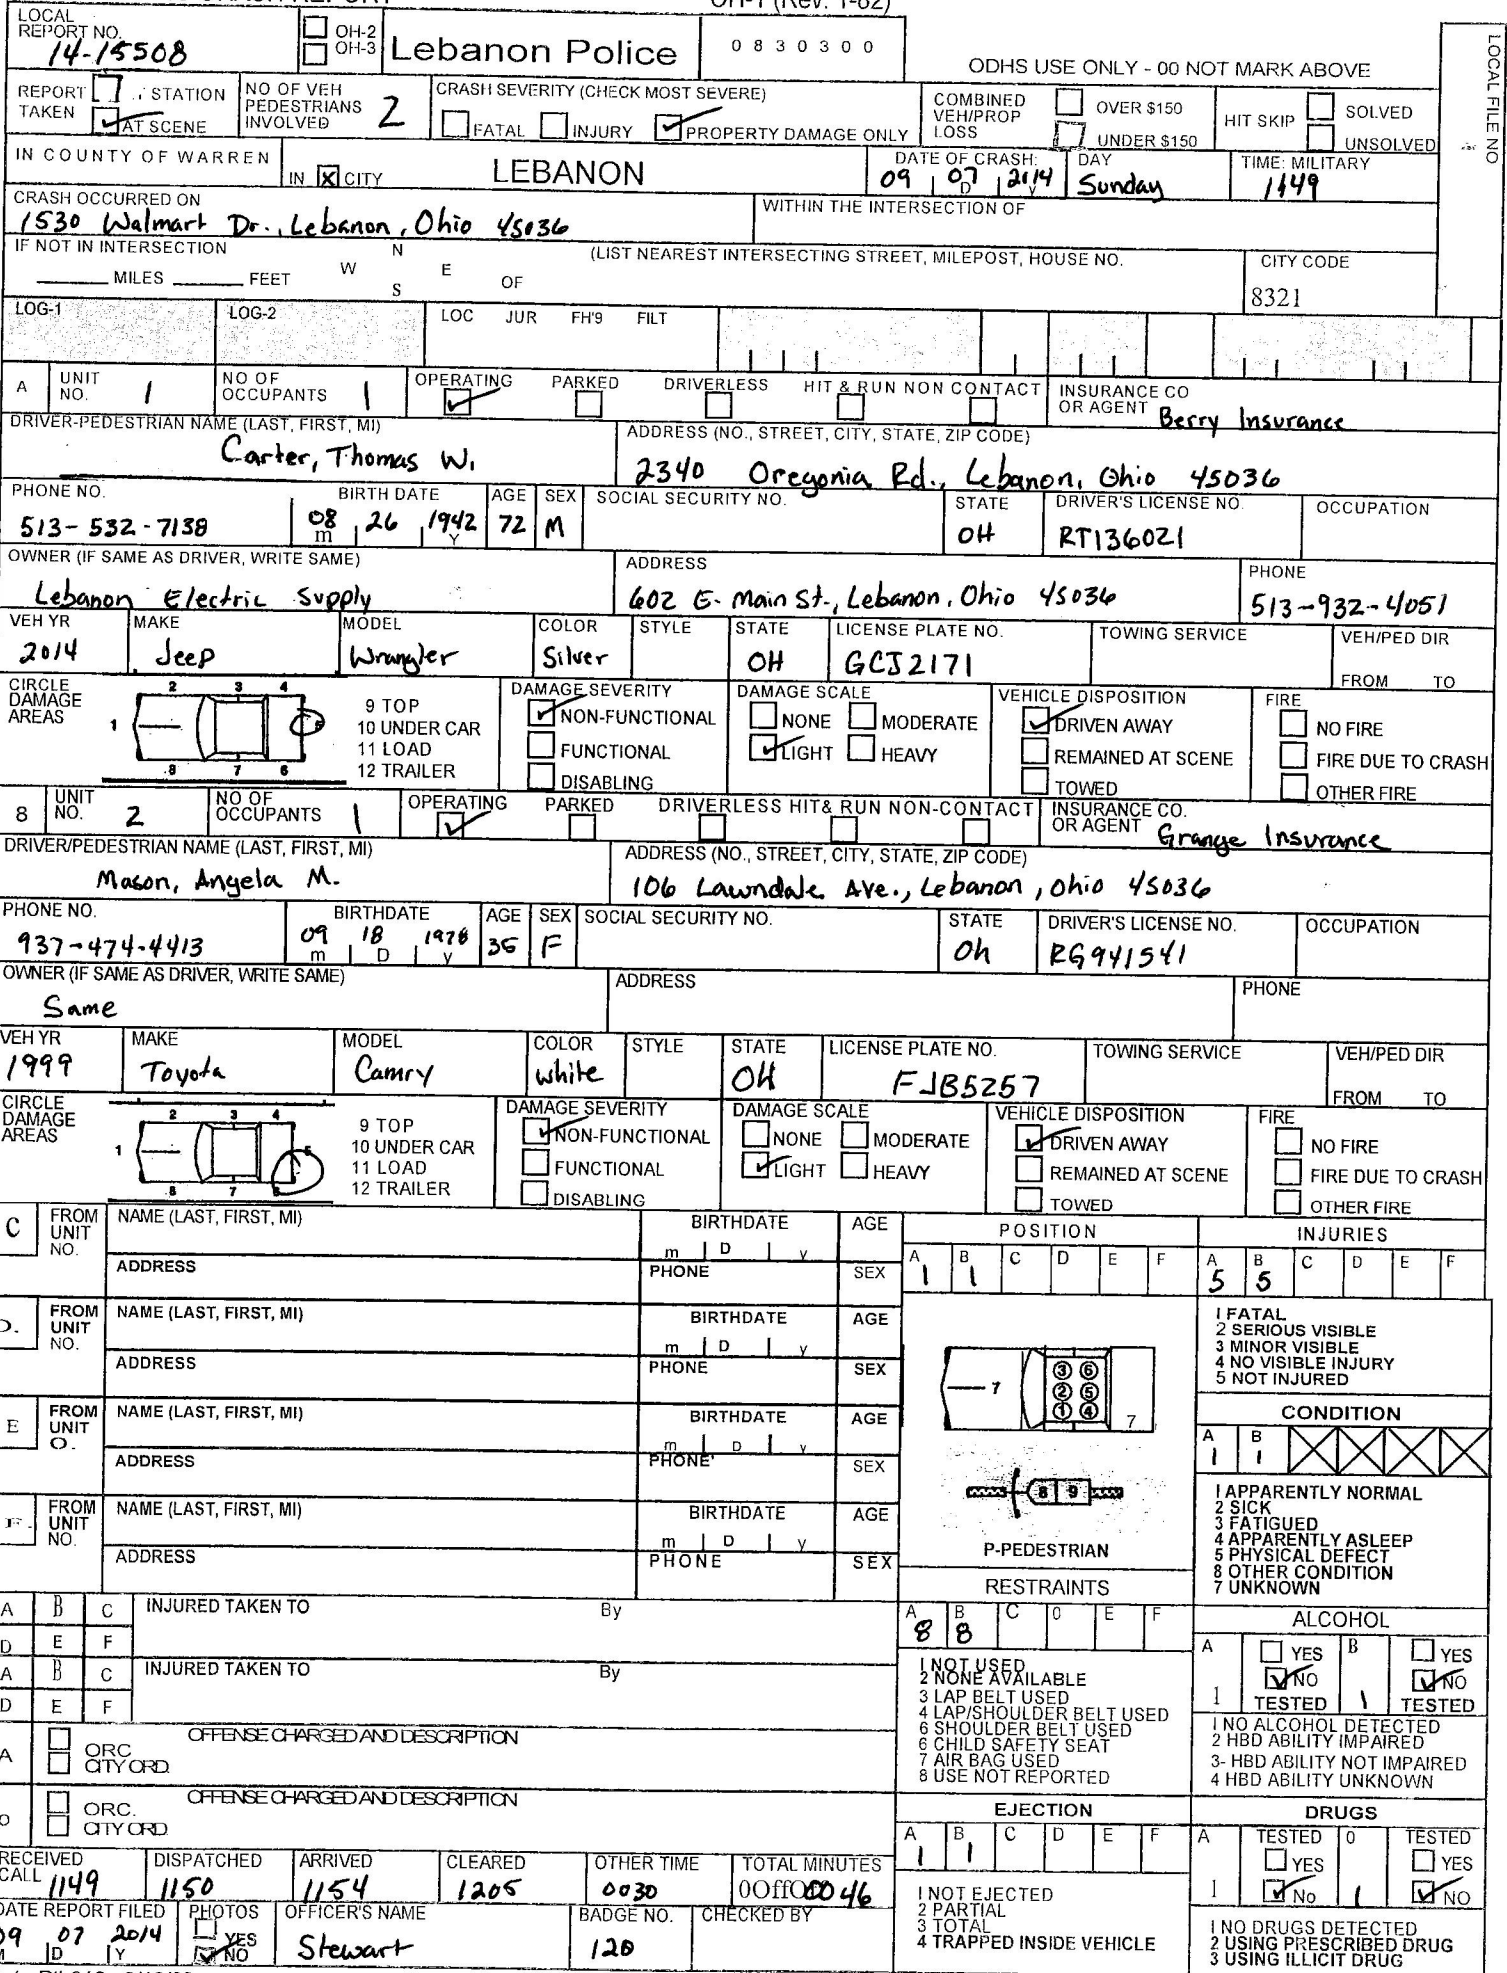 OH-1 (Rev. 1-82)
LOCAL REPORT NO. 14-15508
OH-2
OH-3
Lebanon Police
0 8 3 0 3 0 0
ODHS USE ONLY - 00 NOT MARK ABOVE
LOCAL FILE NO
REPORT TAKEN STATION AT SCENE
NO OF VEH PEDESTRIANS INVOLVED 2
CRASH SEVERITY (CHECK MOST SEVERE)
FATAL INJURY PROPERTY DAMAGE ONLY
COMBINED VEH/PROP LOSS OVER $150 UNDER $150
HIT SKIP SOLVED UNSOLVED
IN COUNTY OF WARREN
IN X CITY LEBANON
DATE OF CRASH: 09 07 D 2014 y
DAY Sunday
TIME: MILITARY 1149
CRASH OCCURRED ON
1530 Walmart Dr., Lebanon, Ohio 45036
WITHIN THE INTERSECTION OF
IF NOT IN INTERSECTION
MILES FEET W N S E OF
(LIST NEAREST INTERSECTING STREET, MILEPOST, HOUSE NO.
CITY CODE 8321
LOG-1 LOG-2 LOC JUR FH'9 FILT
A UNIT NO. 1 NO OF OCCUPANTS 1
OPERATING PARKED DRIVERLESS HIT & RUN NON CONTACT
INSURANCE CO OR AGENT Berry Insurance
DRIVER-PEDESTRIAN NAME (LAST, FIRST, MI)
Carter, Thomas W.
ADDRESS (NO., STREET, CITY, STATE, ZIP CODE)
2340 Oregonia Rd., Lebanon, Ohio 45036
PHONE NO. 513-532-7138
BIRTH DATE 08 m 26 1942 Y
AGE 72
SEX M
SOCIAL SECURITY NO.
STATE OH
DRIVER'S LICENSE NO. RT136021
OCCUPATION
OWNER (IF SAME AS DRIVER, WRITE SAME)
Lebanon Electric Supply
ADDRESS
602 E. Main St., Lebanon, Ohio 45036
PHONE 513-932-4051
VEH YR 2014
MAKE Jeep
MODEL Wrangler
COLOR Silver
STYLE
STATE OH
LICENSE PLATE NO. GCJ2171
TOWING SERVICE
VEH/PED DIR FROM TO
CIRCLE DAMAGE AREAS
1 2 3 4 8 7 6
9 TOP
10 UNDER CAR
11 LOAD
12 TRAILER
DAMAGE SEVERITY
NON-FUNCTIONAL
FUNCTIONAL
DISABLING
DAMAGE SCALE
NONE MODERATE
LIGHT HEAVY
VEHICLE DISPOSITION
DRIVEN AWAY
REMAINED AT SCENE
TOWED
FIRE
NO FIRE
FIRE DUE TO CRASH
OTHER FIRE
8 UNIT NO. 2 NO OF OCCUPANTS 1
OPERATING PARKED DRIVERLESS HIT& RUN NON-CONTACT
INSURANCE CO. OR AGENT Grange Insurance
DRIVER/PEDESTRIAN NAME (LAST, FIRST, MI)
Mason, Angela M.
ADDRESS (NO., STREET, CITY, STATE, ZIP CODE)
106 Lawndale Ave., Lebanon, Ohio 45036
PHONE NO. 937-474-4413
BIRTHDATE 09 m 18 D 1978 y
AGE 35
SEX F
SOCIAL SECURITY NO.
STATE Oh
DRIVER'S LICENSE NO. RG941541
OCCUPATION
OWNER (IF SAME AS DRIVER, WRITE SAME)
Same
ADDRESS
PHONE
VEH YR 1999
MAKE Toyota
MODEL Camry
COLOR white
STYLE
STATE OH
LICENSE PLATE NO. FJB5257
TOWING SERVICE
VEH/PED DIR FROM TO
CIRCLE DAMAGE AREAS
1 2 3 4 5 8 7 6
9 TOP
10 UNDER CAR
11 LOAD
12 TRAILER
DAMAGE SEVERITY
NON-FUNCTIONAL
FUNCTIONAL
DISABLING
DAMAGE SCALE
NONE MODERATE
LIGHT HEAVY
VEHICLE DISPOSITION
DRIVEN AWAY
REMAINED AT SCENE
TOWED
FIRE
NO FIRE
FIRE DUE TO CRASH
OTHER FIRE
C FROM UNIT NO. NAME (LAST, FIRST, MI) BIRTHDATE m D y AGE
ADDRESS PHONE SEX
D. FROM UNIT NO. NAME (LAST, FIRST, MI) BIRTHDATE m D y AGE
ADDRESS PHONE SEX
E FROM UNIT O. NAME (LAST, FIRST, MI) BIRTHDATE m D y AGE
ADDRESS PHONE SEX
F. FROM UNIT NO. NAME (LAST, FIRST, MI) BIRTHDATE m D y AGE
ADDRESS PHONE SEX
POSITION
A 1 B 1 C D E F
7 3 6 2 5 1 4 7
8 9
P-PEDESTRIAN
INJURIES
A 5 B 5 C D E F
1 FATAL
2 SERIOUS VISIBLE
3 MINOR VISIBLE
4 NO VISIBLE INJURY
5 NOT INJURED
CONDITION
A 1 B 1
1 APPARENTLY NORMAL
2 SICK
3 FATIGUED
4 APPARENTLY ASLEEP
5 PHYSICAL DEFECT
8 OTHER CONDITION
7 UNKNOWN
A B C INJURED TAKEN TO By
D E F
A B C INJURED TAKEN TO By
D E F
RESTRAINTS
A 8 B 8 C 0 E F
1 NOT USED
2 NONE AVAILABLE
3 LAP BELT USED
4 LAP/SHOULDER BELT USED
6 SHOULDER BELT USED
6 CHILD SAFETY SEAT
7 AIR BAG USED
8 USE NOT REPORTED
ALCOHOL
A 1 YES NO TESTED B 1 YES NO TESTED
1 NO ALCOHOL DETECTED
2 HBD ABILITY IMPAIRED
3- HBD ABILITY NOT IMPAIRED
4 HBD ABILITY UNKNOWN
A ORC CITY ORD. OFFENSE CHARGED AND DESCRIPTION
ORC. CITY ORD. OFFENSE CHARGED AND DESCRIPTION
EJECTION
A 1 B 1 C D E F
1 NOT EJECTED
2 PARTIAL
3 TOTAL
4 TRAPPED INSIDE VEHICLE
DRUGS
A 1 TESTED YES No 0 1 TESTED YES NO
1 NO DRUGS DETECTED
2 USING PRESCRIBED DRUG
3 USING ILLICIT DRUG
RECEIVED CALL 1149
DISPATCHED 1150
ARRIVED 1154
CLEARED 1205
OTHER TIME 0030
TOTAL MINUTES 0046
DATE REPORT FILED 09 M 07 D 2014 Y
PHOTOS YES NO
OFFICER'S NAME Stewart
BADGE NO. 120
CHECKED BY